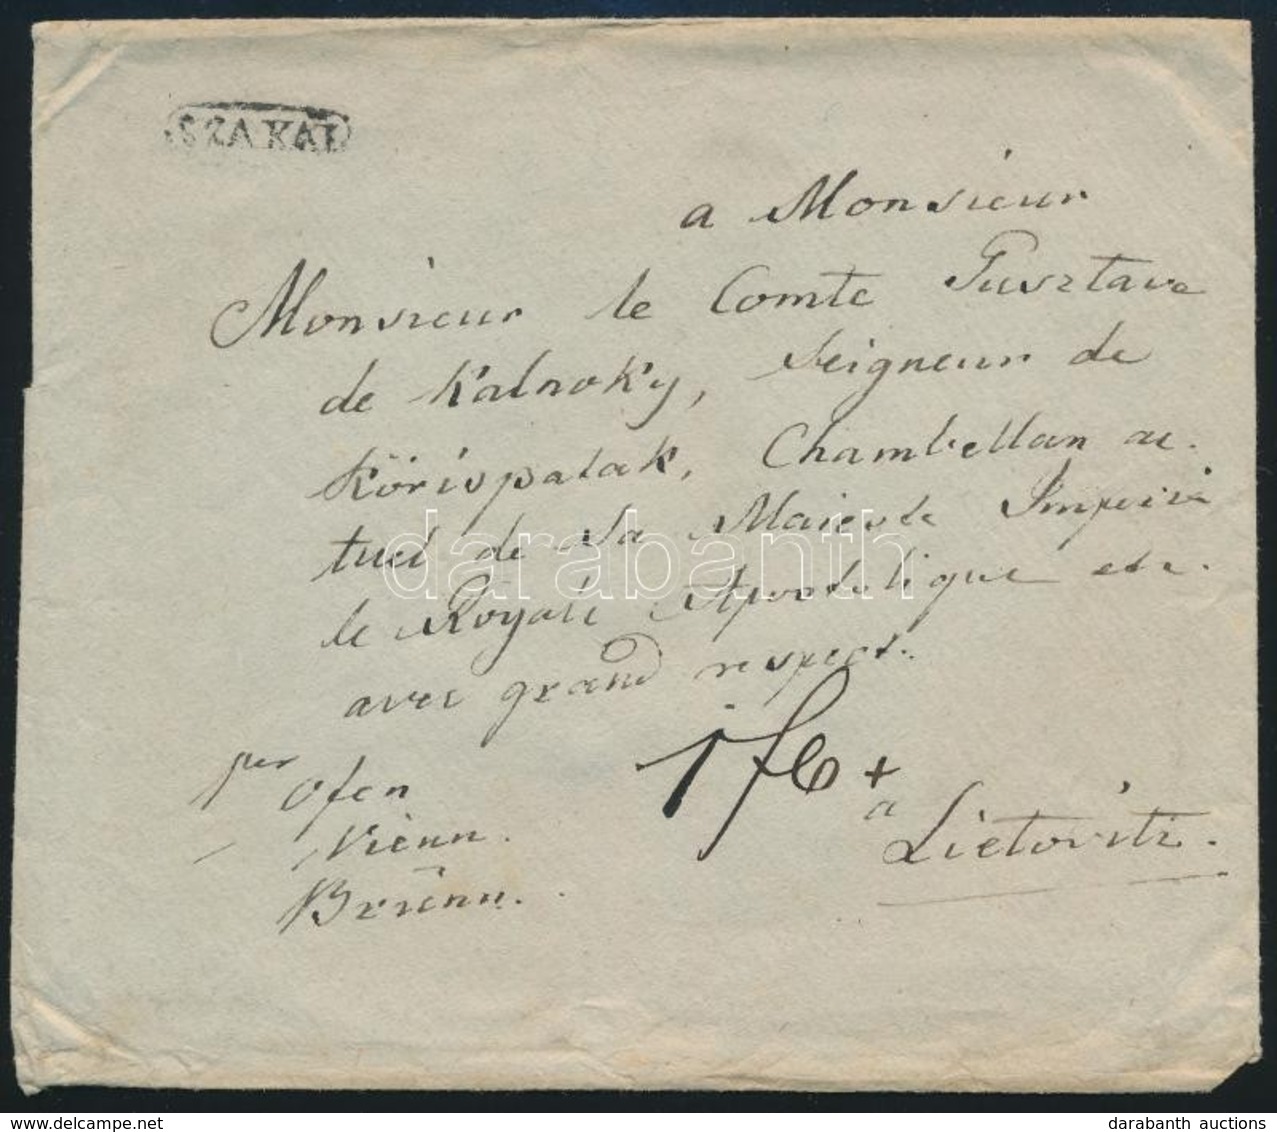 SZAKAL
a Monsieur
Monsieur le Comte Gusztave
de Kalnoky, Seigneur de
Köröspatak, Chambellan ac.
tuel de Sa Maieste Imperia
le Royale Apostolique etc.
avec grand respect.
per Ofen
Vienn.
Brünn.
a
Lietovitz.
darabanth
delcampe.net
darabanth auctions